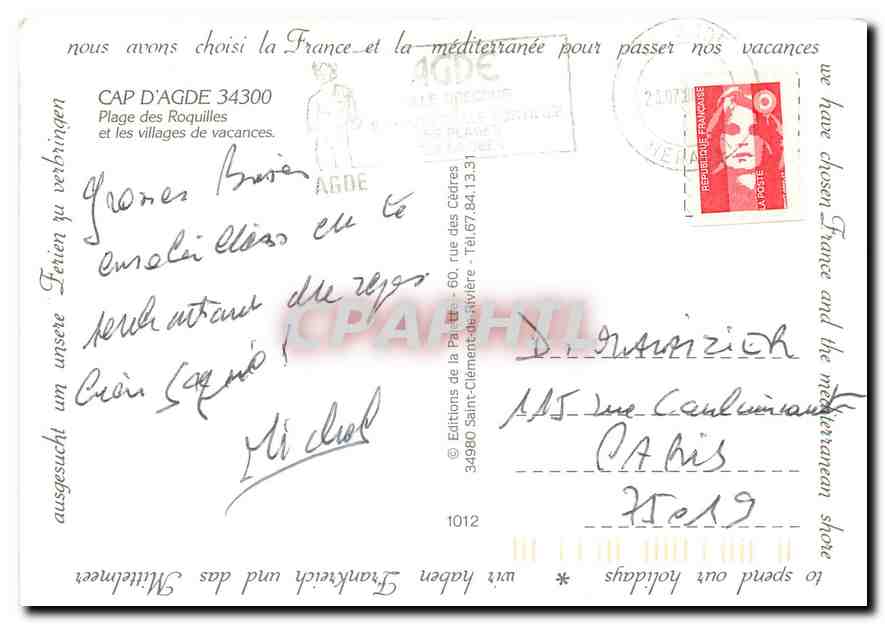 nous avons choisi la France et la méditerranée pour passer nos vacances
we have chosen France and the méditerranean shore
to spend our holidays * wir haben Frankreich und das Mittelmeer
ausgesucht um unsere Ferien zu verbringen
CAP D'AGDE 34300
Plage des Roquilles
et les villages de vacances.
AGDE
AGDE
RÉPUBLIQUE FRANÇAISE
LA POSTE
Grosses Bises
ensoleillées en te
souhaitant du repos
bien gagné!
Michel
© Editions de la Palette - 60, rue des Cèdres
34980 Saint-Clément-de-Rivière - Tél.67.84.13.31
1012
CPAPHIL
115 rue
PARIS
75019